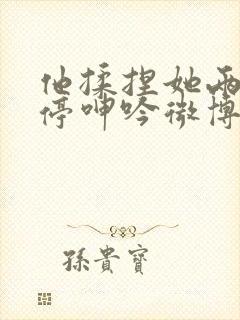 他揉捏她两
停呻吟微博
孫貴寶